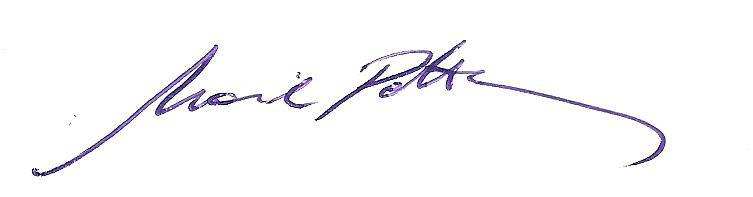 Marie Potter